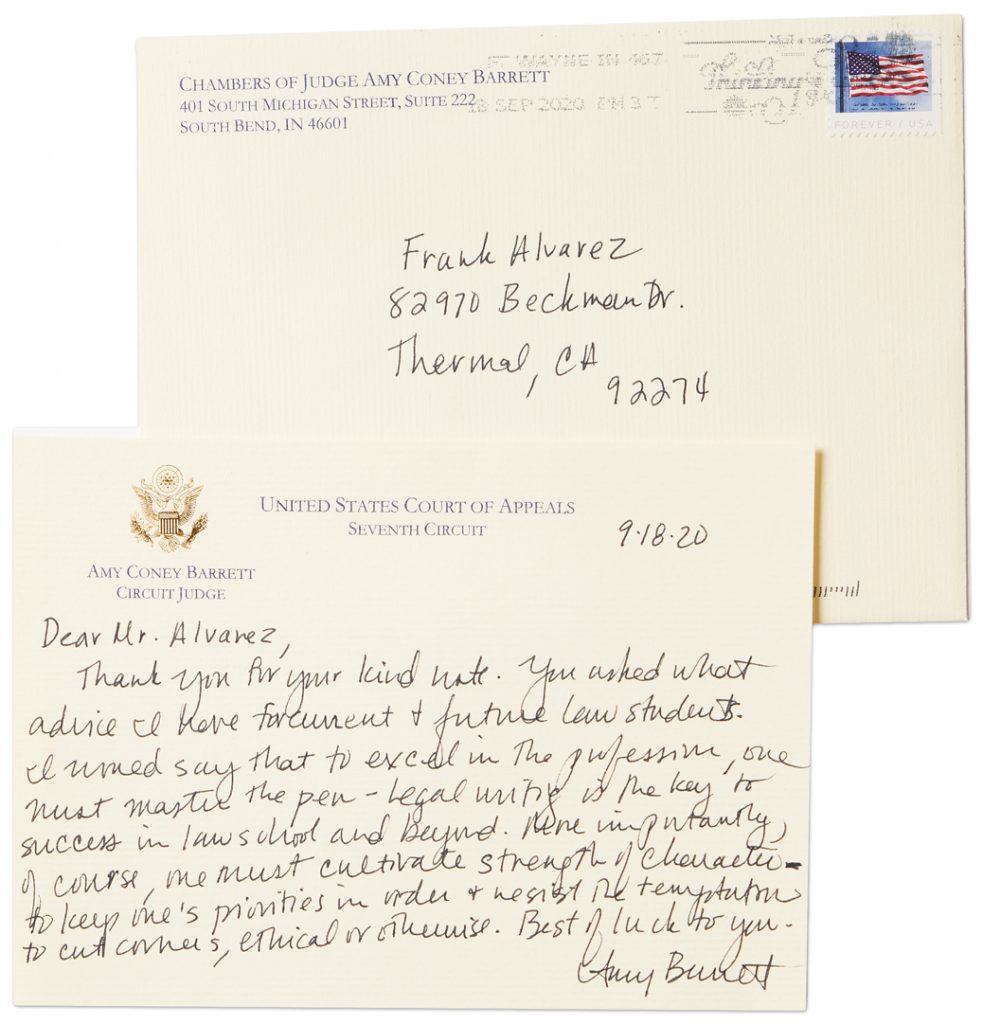 CHAMBERS OF JUDGE AMY CONEY BARRETT
401 SOUTH MICHIGAN STREET, SUITE 222
SOUTH BEND, IN 46601
FT WAYNE IN 467
18 SEP 2020 PM 3 T
FOREVER / USA
Frank Alvarez
82970 Beckman Dr.
Thermal, CA
92274
UNITED STATES COURT OF APPEALS
SEVENTH CIRCUIT
9.18.20
AMY CONEY BARRETT
CIRCUIT JUDGE
Dear Mr. Alvarez,
Thank you for your kind note. You asked what
advice I have for current + future law students.
I would say that to excel in the profession, one
must master the pen - legal writing is the key to
success in law school and beyond. More importantly,
of course, one must cultivate strength of character -
to keep one's priorities in order + resist the temptation
to cut corners, ethical or otherwise. Best of luck to you.
Amy Barrett